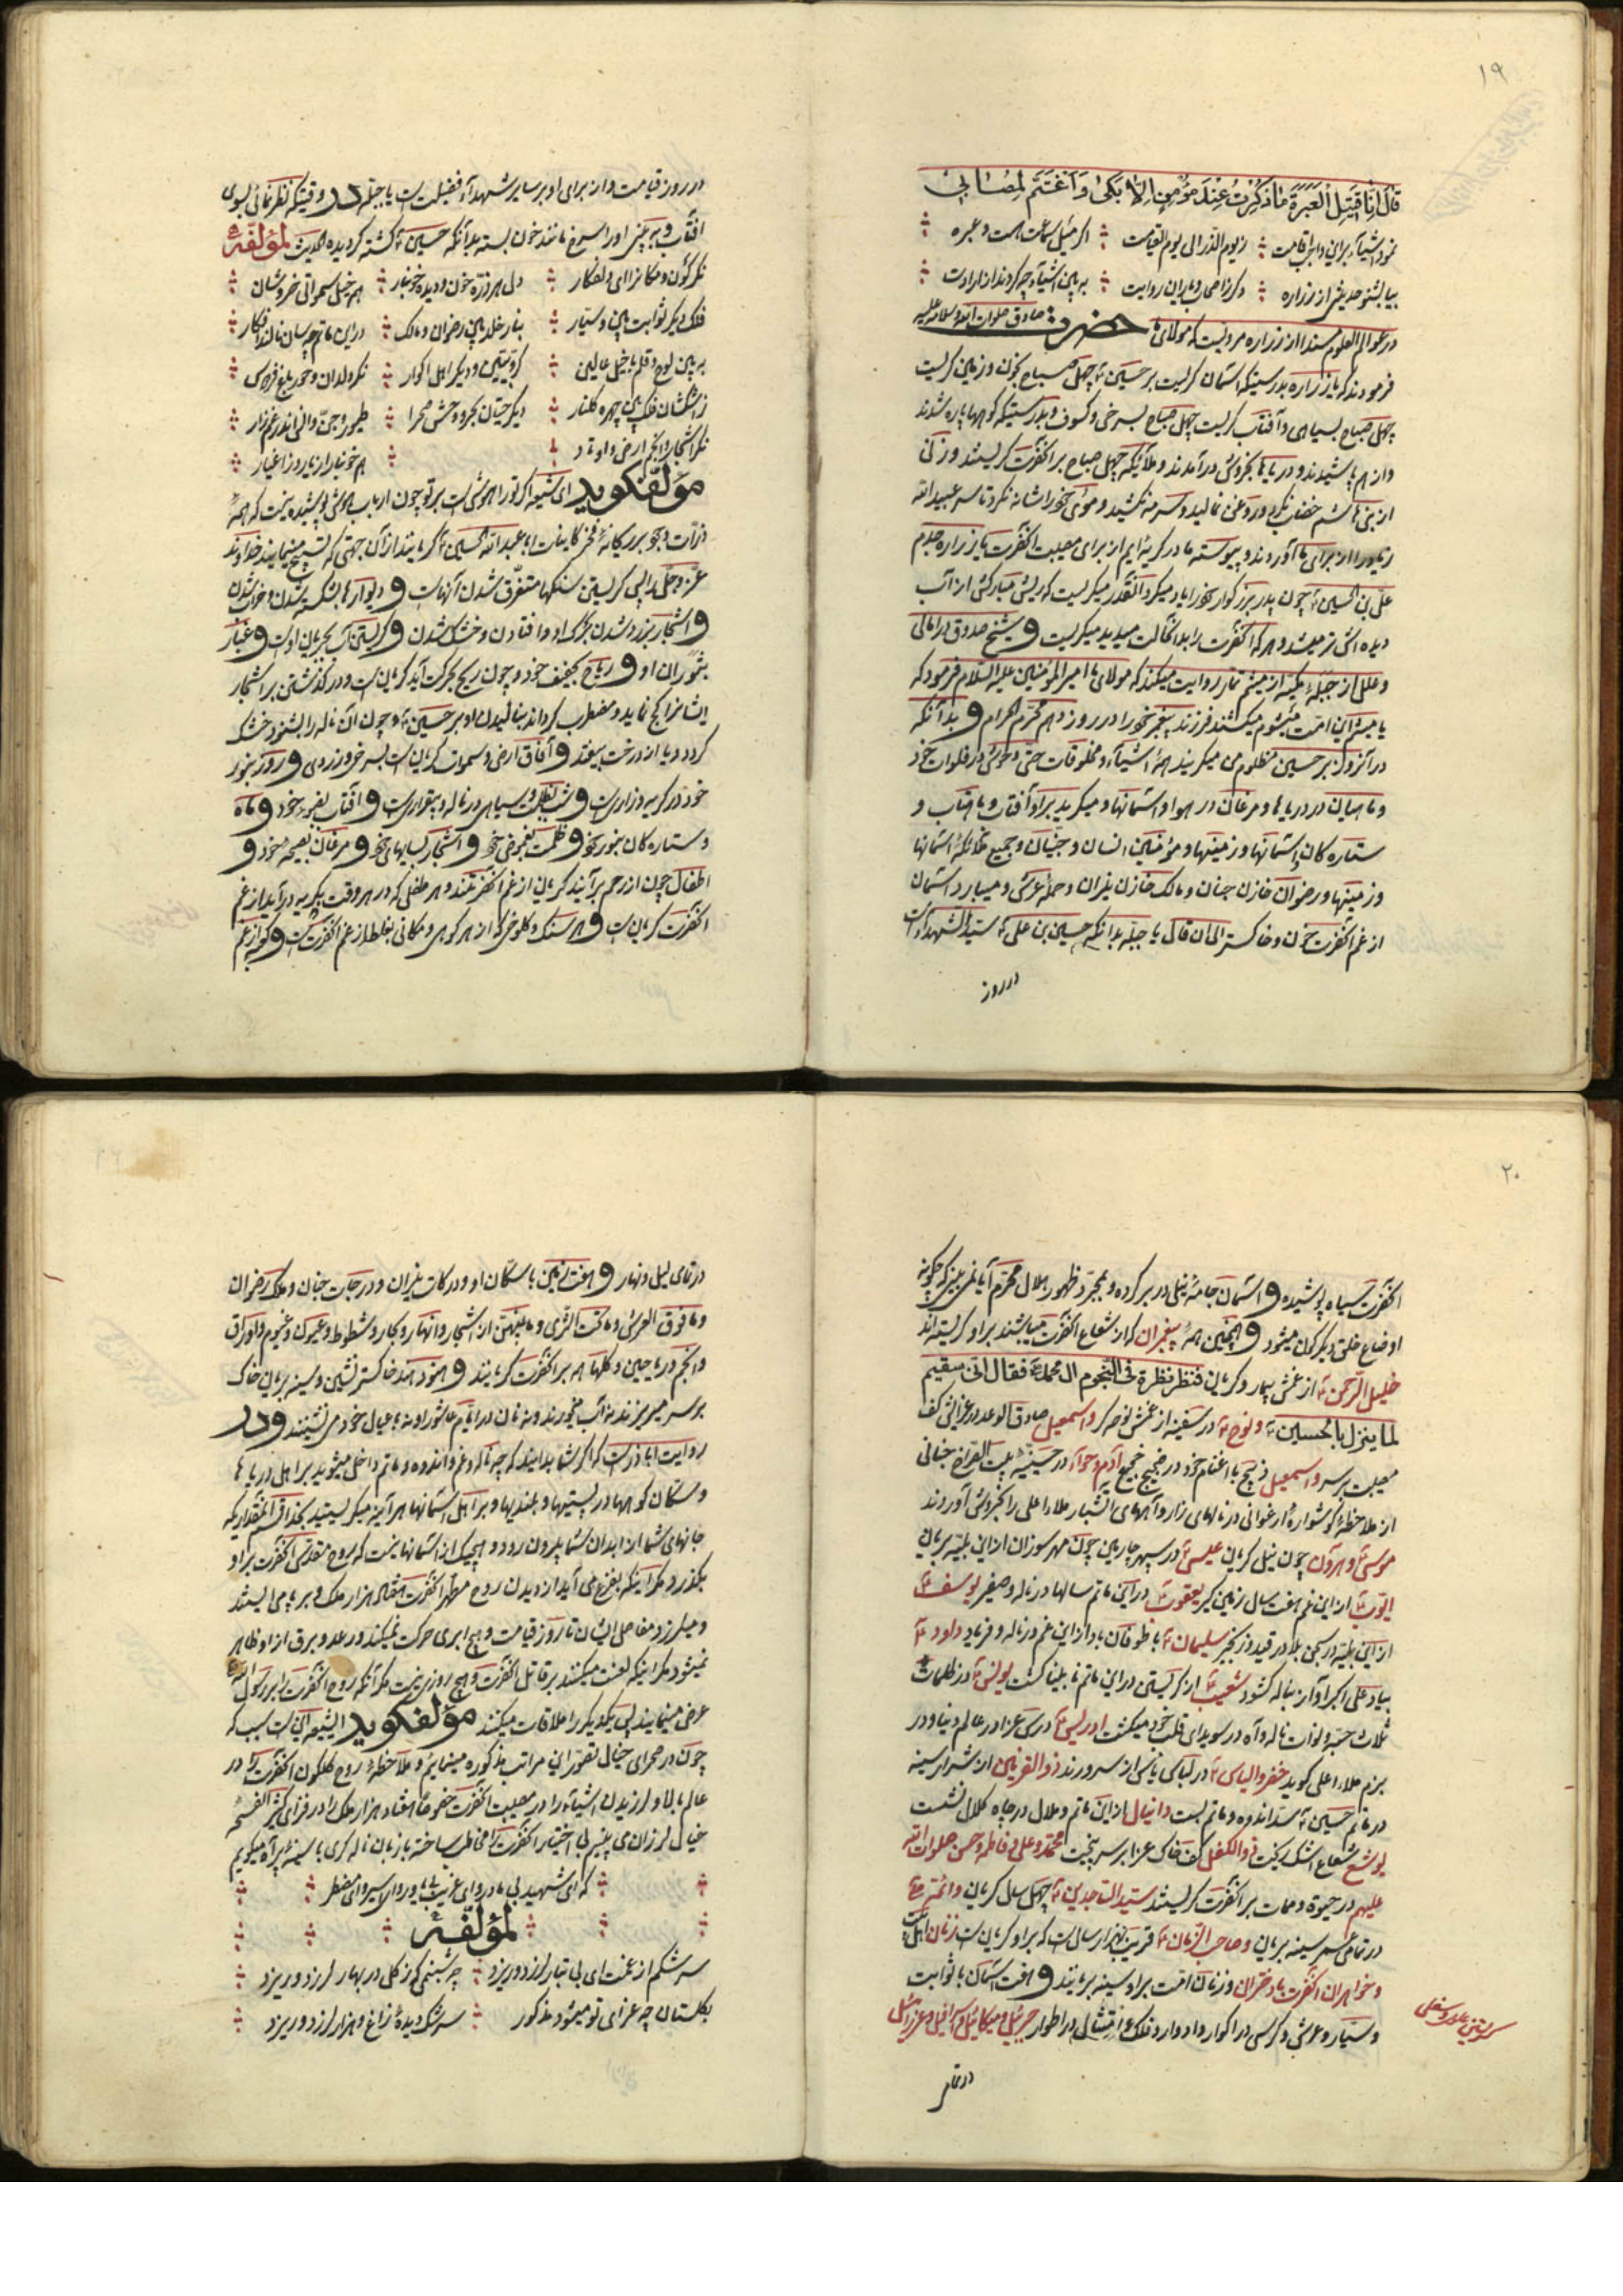 ۱۹
قال انا قتیل العبرة ما ذکرت عند مؤمن الا بکی و اغتم لمصابی
نمود اشیآء براین واجب اقامت ؛ ز یوم الذر الی یوم القیامت ؛ اگر میل سماعت هست و عبره
بیا بشنو حدیثی از زراره ؛ دگر ز اصحاب و یاران روایت ؛ به بین اشیآء چه کردند از ارادت
در عوالم العلوم مسندا از زراره مرویست که مولای ما حضرت صادق صلوات الله و سلامه علیه
فرمودند که یا زراره بدرستیکه اسمان گریست بر حسین ع چهل صباح بخون و زمین گریست
چهل صباح بسیاهی و آفتاب گریست چهل صباح بسرخی و کسوف و بدرستیکه کوهها پاره شدند
و از هم پاشیدند و دریاها بخروش درآمدند و ملآئیکه چهل صباح بر آنحضرت گریستند و زنی
از بنی هاشم خضاب نکرد و روغن نمالید و سرمه نکشید و موی خود را شانه نکرد تا سر عبیدالله
زیاد را از برای ما آوردند و پیوسته ما در گریه ایم از برای مصیبت آنحضرت یا زراره جدم
علی بن الحسین ع چون پدر بزرگوار خود را یاد میکرد آنقدر میگریست که ریش مبارکش از آب
دیده اش تر میشد و هر که آنحضرت را بدانحالت میدید میگریست و شیخ صدوق در امالی
و علل از جبله مکیه از میثم تمار روایت میکند که مولای ما امیرالمؤمنین علیه السلام فرمود که
یا میثم این امت میشوم میکشند فرزند پیغمبر خود را در روز دهم محرم الحرام و بدآنکه
در آنروز بر حسین مظلوم می میگریند همهٔ اشیآء و مخلوقات حتی وحوش در فلوات خود
و ماهیان در دریاها و مرغان در هوا و اسمانها و میگرید بر او آفتاب و ماهتاب و
ستاره کان و اسمانها و زمینها و مؤمنین انسان و جنیان و جمیع ملائکهٔ اسمانها
و زمینها و رضوان خازن جنان و مالک خازن نیران و حملهٔ عرش و میبارد اسمان
از غم آنحضرت خون و خاکستر الی ان قال یا جبله بدانکه حسین بن علی ع سیدالشهداء است
در روز
در روز قیامت و از برای او بر سایر شهدآء فضیلت است یا جبله در وقتیکه نظر نمائی بسوی
آفتاب و به بینی او را سرخ مانند خون بسته بدآنکه حسین ع کشته گردیده الحدیث لمؤلفه
نگر کون و مکان را ای دلفکار ؛ دل هر ذره خون و دیده خونبار ؛ همه خیل سمواتی خروشان
فلک دیگر ثوابت بین و سیار ؛ بنار خلد بین رضوان و مالک ؛ در این ماتم چه سان نالند افکار
به بین لوح و قلم با خیل عالین ؛ کروبیین و دیگر اهل اکوار ؛ نگر ولدان و حور باغ فردوس
ز اشکشان فلک بین چهره گلنار ؛ دیگر حیتان بحر و وحش صحرا ؛ طیور و جن و انس اندر غم زار
نگر اشجار و انجم ارض و اوتاد ؛ همه خونبار از یار و ز اغیار
مؤلفگوید ای شیعه اگر تو را هوشی است بر تو چون ارباب هوش پوشیده نیست که همهٔ
ذرات وجود بر یگانهٔ فخر کاینات ابا عبدالله الحسین ع گریانند از آن جهتی که تسبیح مینمایند خداوند
عز و جل را پس گریستن سنگها متفرق شدن آنهاست و دیوارها بشکسته شدن و خراب شدن
و اشجار بزرد شدن برگ او و افتادن و خشک شدن و گریستن آب بجریان اوست و غبار
بثوران او و ریاح بعجیف خود و چون ریح بحرکت آید گریانست و در گذشتن بر اشجار
ایشانرا کج نماید و مضطرب گرداند بنالیدن او بر حسین ع و چون آن ناله را بشنود خشک
گردد و یا از درخت بیفتد و آفاق ارض و سموات گریان است بسرخی و زردی و روز بنور
خود در گریه و زاریست و شب بظلمت و سیاهی در ناله و بیقراریست و آفتاب بغیره خود و ماه
و ستاره کان بنور خود و ظلمت بغموض خود و اشجار بسایهای خود و مرغان بصیحه خود و
اطفال چون از رحم برآیند گریان از غم آنحضرتند و هر طفلی که در هر وقت بگریه درآید از غم
آنحضرت گریانست و هر سنگ و کلوخی که از هر کوهی و مکانی بغلطد از غم آنحضرتست و کوه از غم
۲۰
آنحضرت سیاه پوشیده و اسمان جامهٔ نیلی در بر کرده و بمجرد ظهور هلال محرم آیا نمی بینی که چگونه
اوضاع خلق دیگرگون میشود و همچنین همهٔ پیغمبران که از شعاع آنحضرت میباشند بر او گریسته اند
خلیل الرحمن ع از غمش بیمار و گریان فنظر نظرة فی النجوم ال محمد ع فقال انی سقیم
لما ینزل بالحسین ع و نوح ع در سفینه از غمش نوحه گر و اسمعیل صادق الوعد در عزایش کف
مصیبت بر سر و اسمعیل ذبیح با اغنام خود در ضجیج عجیج آدم و حوآء در حسینیه بیت الفراغ جنانی
از ملاحظهٔ گوشواره ارغوانی در نالهای زار و آههای آتشبار ملاء اعلی را بخروش آوردند
موسی ع و هرون چون نیل گریان عیسی ع در سپهر چارمین چون مهر سوزان از این بلیه بریان
ایوب ع از این غم هفت سال زمین گیر یعقوب ع در این ماتم سالها در ناله و صغیر یوسف ع
از این بلیه در سجن بلا در قید و زنجیر سلیمان ع با طوفان باد از این غم در ناله و فریاد داود ع
بیاد علی اکبر آواز بناله گشود شعیب ع از گریستن در این ماتم نابینا گشت یونس ع در ظلمات
ثلاث حبه ولوات ناله و آه در سویدای قلب خود میکشت ادریس ع درس عزا در عالم دنیا و در
بزم ملاء اعلی گوید خضر و الیاس ع در لباس یاس از سرورند ذوالقرنین از شرار سینه
در ماتم حسین ع سد اندوه و ماتم بست دانیال از این ماتم و ملال در چاه کلال نشست
یوشع شعاع اشک ریخت ذوالکفل کف خاک عزا بر سر بیخت محمد و علی و فاطمه و حسن صلوات الله
علیهم در حیوة و ممات بر آنحضرت گریستند سیدالساجدین ع چهل سال گریان و ائمه ع
در تمامی عمر سینه بریان و صاحب الزمان ع قریب بهزار سالست که بر او گریانست زنان اهلبیت
و خواهران آنحضرت با دختران و زنان امت بر او سینه بریانند و هفت اسمان با ثوابت
و سیار و عرش و کرسی در اکوار و ادوار و فلک و امتثال در اطوار جبرئیل و میکائیل و اسرافیل و عزرائیل
در تمام
در تمامی لیل و نهار و هفت زمین با سکان او و درکات نیران و درجات جنان و ملک رضوان
و مافوق العرش و ما تحت الثری و ما بینهن از اشجار و انهار و بحار و شطوط و عیون و غیوم و اوراق
و انجم و ریاحین و گلها همه بر آنحضرت گریانند و هنود هند خاکستر نشین و سینه بریان خاک
بر سر میریزند نه آب میخورند و نه نان در ایام عاشورا و نه با عیال خود می نشینند و در
روایت اباذر است که اگر شما بدانید که چه ناله و غم و اندوه و ماتم داخل میشود بر اهل دریاها
و سکان کوهها در پستیها و بلندیها و بر اهل اسمانها هر آینه میگریستید بخدا قسم آنمقدار که
جانهای شما از ابدان شما بیرون رود و هیچیک از اسمانها نیست که روح مقدس آنحضرت بر او
بگذرد مگر اینکه بفزع می آید از دیدن روح مطهر آنحضرت هفتاد هزار ملک و بر پا می ایستند
و میلرزد مفاصل ایشان تا روز قیامت و هیچ ابری حرکت نمیکند و رعد و برق از او ظاهر
نمیشود مگر اینکه لعنت میکنند بر قاتل آنحضرت و هیچ روزی نیست مگر آنکه روح آنحضرت را بر رسول الله
عرض مینمایند پس یکدیگر را ملاقات میکنند مؤلفگوید ایشیعه این است سبب که
چون در صحرای خیال تصور این مراتب مذکوره مینمایم و ملاحظهٔ روح گلگون آنحضرت را در
عالم بالا و لرزیدن اشیآء را در مصیبت آنحضرت خصوصا هفتاد هزار ملک را در فزای
خیال لرزان می بینم بی اختیار آنحضرت را مخاطب ساخته با زبان ناله گری با سینهٔ پر آه میگویم
که ای شهید بی مادر وای غریب بی یاور وای اسیر وای مضطر
لمؤلفه
سرشکم از غمت ای بی تبار لرزد و ریزد ؛ چه شبنمی که ز گل در بهار لرزد و ریزد
بگلستان چه عزای تو میشود مذکور ؛ سرشک دیدهٔ زاغ و هزار لرزد و ریزد